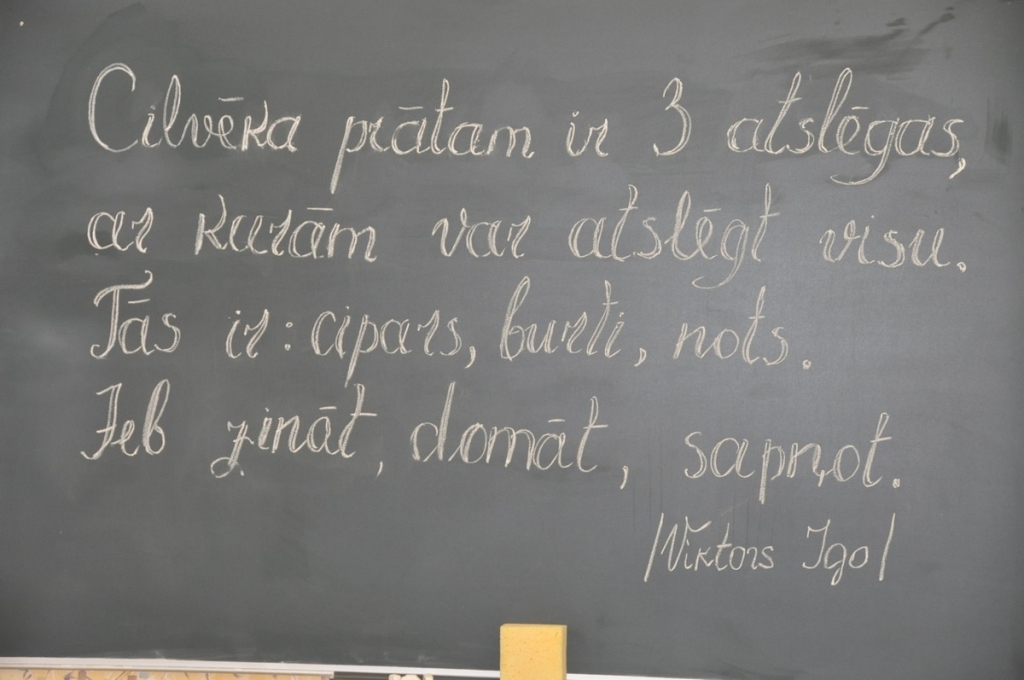 Cilvēka prātam ir 3 atslēgas,
ar kurām var atslēgt visu.
Tās ir: cipars, burti, nots.
Jeb zināt, domāt, sapņot.
/Viktors Igo/